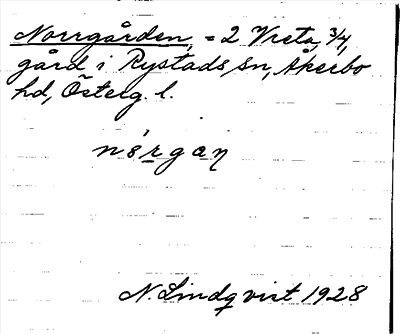 Norrgården, = 2 Vreta, 3/4,
gård i Rystads sn, Åkerbo
hd, Österg. l.
nórgaŋ
N. Lindqvist 1928